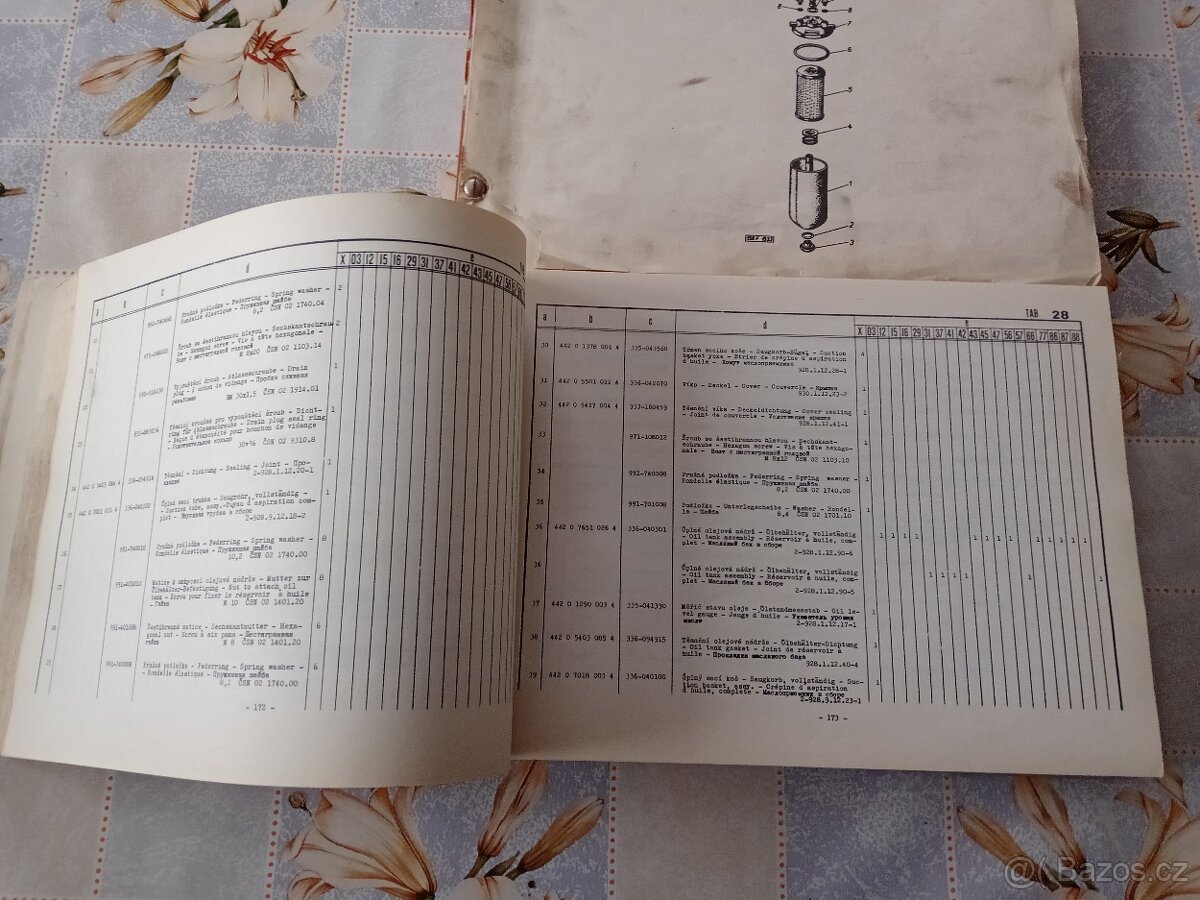 8
8
7
6
5
4
1
2
3
d
e
X 03 12 15 16 29 31 37 41 42 43 45 47
Pružná podložka - Federring - Spring washer -
Rondelle élastique - Пружинная шайба
8,2 ČSN 02 1740.04
2
Šroub se šestihrannou hlavou - Sechskantschrau
be - Hexagon screw - Vis à tête hexagonale -
Болт с шестигранной головкой
M 8x20 ČSN 02 1103.14
2
Vypouštěcí šroub - Ablasschraube - Drain
plug - Пробка сливная
BM 30x1,5 ČSN 02 1914.01
1
Těsnicí kroužek pro vypouštěcí šroub - Dicht-
ring für Ablasschraube - Drain plug seal ring
- Bague d'étanchéité pour bouchon de vidange
- Уплотнительное кольцо
30x36 ČSN 02 9310.8
1
442 0 5403 084 4 336-094904 Těsnění - Dichtung - Sealing - Joint - Про-
кладка
2-928.1.12.20-1
1
442 0 7021 031 4 336-040320 Úplná sací trubka - Saugrohr, vollständig -
- Suction tube, assy. - Tuyau d'aspiration com-
plet - Впускная трубка в сборе
2-928.9.12.18-2
1
991-740010 Pružná podložka - Federring - Spring washer -
Rondelle élastique - Пружинная шайба
10,2 ČSN 02 1740.00
8
991-401010 Matice k uchycení olejové nádrže - Mutter zur
Ölbehälter-Befestigung - Nut to attach oil
tank - Ecrou pour fixer le réservoir à huile
- Гайка
M 10 ČSN 02 1401.20
8
991-401008 Šestihranná matice - Sechskantmutter - Hexa-
gonal nut - Ecrou à six pans - Шестигранная
гайка
M 8 ČSN 02 1401.20
6
991-740008 Pružná podložka - Federring - Spring washer -
- Rondelle élastique - Пружинная шайба
8,2 ČSN 02 1740.00
6
- 172 -
TAB 28
a b c d e
X 03 12 15 16 29 31 37 41 42 43 45 47 56 57 66 76 86 87 88
30 442 0 1378 001 4 335-043560 Třmen sacího koše - Saugkorb-Bügel - Suction
basket yoke - Etrier de crépine d'aspiration
d'huile - Кожух маслоприемника
928.1.12.28-1
4
31 442 0 5581 022 4 336-042870 Víko - Deckel - Cover - Couvercle - Крышка
930.1.12.23-2
1
32 442 0 5437 004 4 933-160459 Těsnění víka - Deckeldichtung - Cover sealing
- Joint de couvercle - Уплотнение крышки
928.1.12.41-1
1
33 971-108012 Šroub se šestihrannou hlavou - Sechskant-
schraube - Hexagon screw - Vis à tête hexago-
nale - Болт с шестигранной головой
M 8x12 ČSN 02 1103.10
34 991-740008 Pružná podložka - Federring - Spring washer -
Rondelle élastique - Пружинная шайба
8,2 ČSN 02 1740.00
35 991-701008 Podložka - Unterlegscheibe - Washer - Rondel-
le - Шайба
8,4 ČSN 02 1701.10
36 442 0 7651 026 4 336-040301 Úplná olejová nádrž - Ölbehälter, vollständig
- Oil tank assembly - Réservoir à huile, com-
plet - Масляный бак в сборе
2-928.1.12.90-6
1 1 1 1 1 1 1 1 1 1
36 Úplná olejová nádrž - Ölbehälter, vollständig
- Oil tank assembly - Réservoir à huile, com-
plet - Масляный бак в сборе
2-928.1.12.90-5
1 1 1 1 1
37 442 0 1290 003 4 335-041390 Měřič stavu oleje - Ölstandmesstab - Oil le-
vel gauge - Jauge d'huile - Указатель уровня
масла
2-928.1.12.17-1
1
38 442 0 5403 085 4 336-094915 Těsnění olejové nádrže - Ölbehälter-Dichtung
- Oil tank gasket - Joint de réservoir à
huile - Прокладка масляного бака
928.1.12.40-4
1
39 442 0 7018 003 4 336-040100 Úplný sací koš - Saugkorb, vollständig - Suc-
tion basket, assy. - Crépine d'aspiration
d'huile, complète - Маслоприемник в сборе
2-928.9.12.23-1
1
- 173 -
Bazos.cz